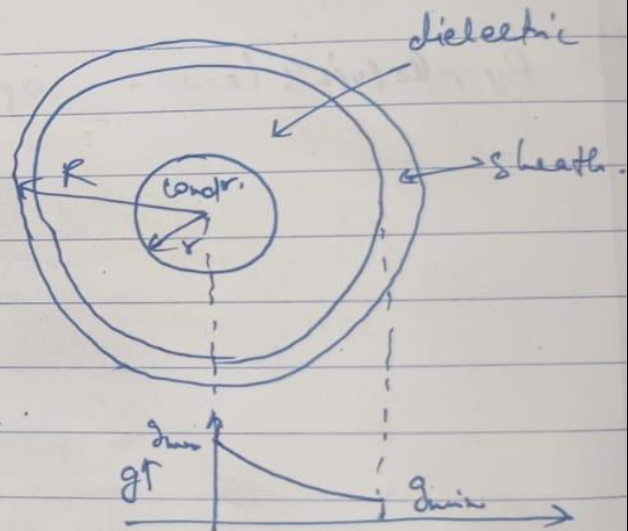 dielectric
sheath.
R
condr.
r
gmax
g↑
gmin